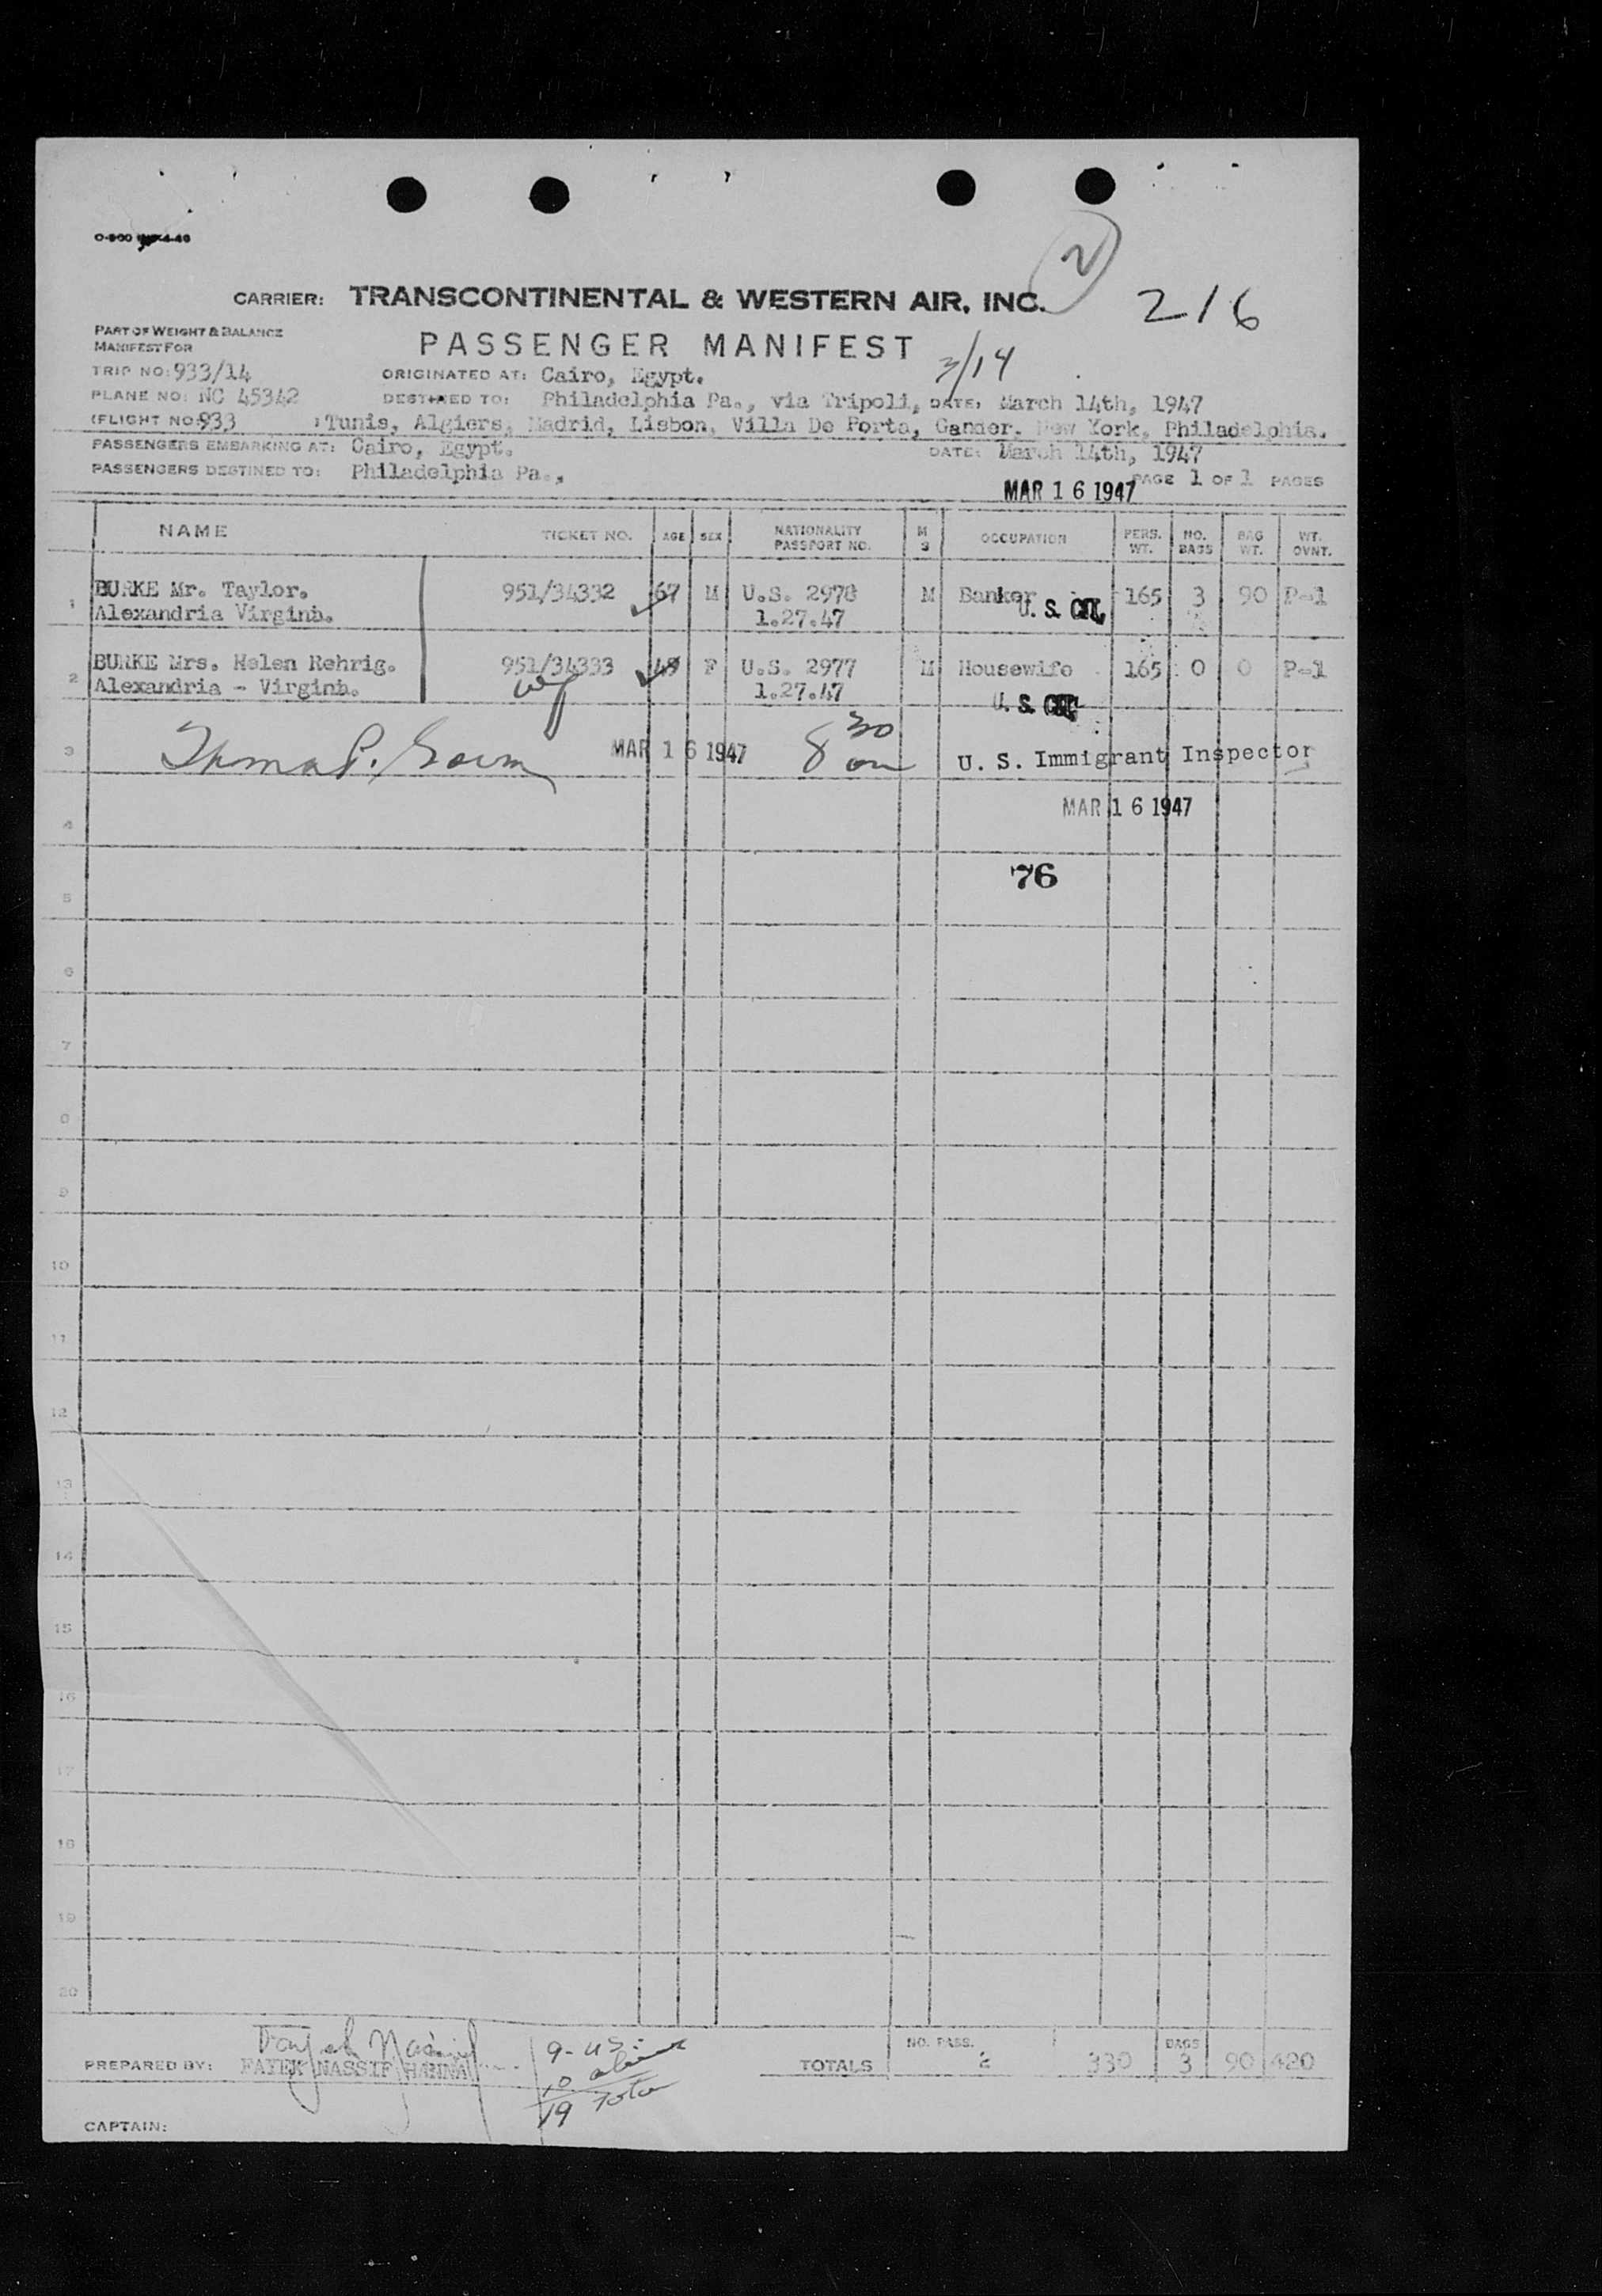 2
CARRIER: TRANSCONTINENTAL & WESTERN AIR, INC.
216
PART OF WEIGHT & BALANCE
MANIFEST FOR
PASSENGER MANIFEST
3/14
TRIP NO: 933/14
ORIGINATED AT: Cairo, Egypt.
PLANE NO: NC 45342
DESTINED TO: Philadelphia Pa., via Tripoli, DATE: March 14th, 1947
(FLIGHT NO: 933 : Tunis, Algiers, Madrid, Lisbon, Villa De Porto, Gander. New York, Philadelphia.
PASSENGERS EMBARKING AT: Cairo, Egypt. DATE: March 14th, 1947
PASSENGERS DESTINED TO: Philadelphia Pa., PAGE 1 OF 1 PAGES
MAR 16 1947
NAME TICKET NO. AGE SEX NATIONALITY PASSPORT NO. M S OCCUPATION PERS. WT. NO. BAGS BAG WT. WT. OVNT.
1 BURKE Mr. Taylor. 951/34332 67 M U.S. 2978 M Banker 165 3 90 P-1
Alexandria Virginia. 1.27.47 U. S. CIT.
2 BURKE Mrs. Helen Rehrig. 951/34333 49 F U.S. 2977 M Housewife 165 0 0 P-1
Alexandria - Virginia. 1.27.47
U. S. CIT.
3 Thomas P. MAR 16 1947 8 30 am U. S. Immigrant Inspector
MAR 16 1947
4
76
5
6
7
8
9
10
11
12
13
14
15
16
17
18
19
20
9-US
10 aliens
19 Total
PREPARED BY: FAYEK NASSIF HANNA
TOTALS NO. PASS. 2 330 BAGS 3 90 420
CAPTAIN: